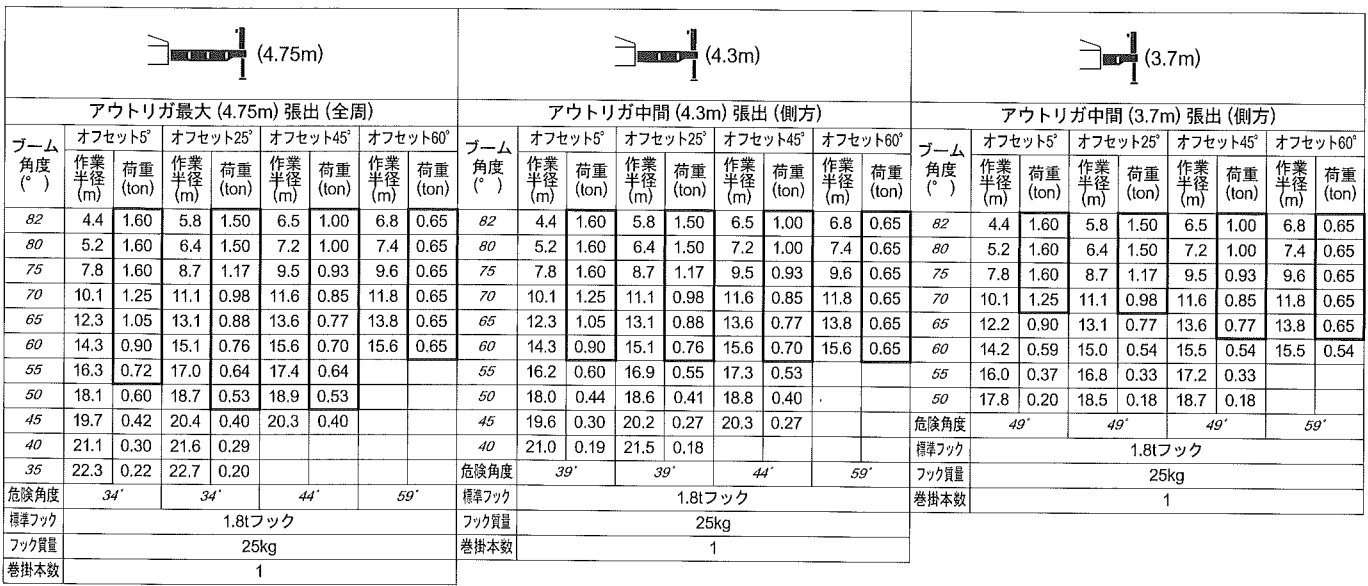 (4.75m)
アウトリガ最大 (4.75m) 張出 (全周)
ブーム角度(° ) オフセット5° オフセット25° オフセット45° オフセット60°
作業半径(m) 荷重(ton) 作業半径(m) 荷重(ton) 作業半径(m) 荷重(ton) 作業半径(m) 荷重(ton)
82 4.4 1.60 5.8 1.50 6.5 1.00 6.8 0.65
80 5.2 1.60 6.4 1.50 7.2 1.00 7.4 0.65
75 7.8 1.60 8.7 1.17 9.5 0.93 9.6 0.65
70 10.1 1.25 11.1 0.98 11.6 0.85 11.8 0.65
65 12.3 1.05 13.1 0.88 13.6 0.77 13.8 0.65
60 14.3 0.90 15.1 0.76 15.6 0.70 15.6 0.65
55 16.3 0.72 17.0 0.64 17.4 0.64
50 18.1 0.60 18.7 0.53 18.9 0.53
45 19.7 0.42 20.4 0.40 20.3 0.40
40 21.1 0.30 21.6 0.29
35 22.3 0.22 22.7 0.20
危険角度 34° 34° 44° 59°
標準フック 1.8tフック
フック質量 25kg
巻掛本数 1
(4.3m)
アウトリガ中間 (4.3m) 張出 (側方)
ブーム角度(° ) オフセット5° オフセット25° オフセット45° オフセット60°
作業半径(m) 荷重(ton) 作業半径(m) 荷重(ton) 作業半径(m) 荷重(ton) 作業半径(m) 荷重(ton)
82 4.4 1.60 5.8 1.50 6.5 1.00 6.8 0.65
80 5.2 1.60 6.4 1.50 7.2 1.00 7.4 0.65
75 7.8 1.60 8.7 1.17 9.5 0.93 9.6 0.65
70 10.1 1.25 11.1 0.98 11.6 0.85 11.8 0.65
65 12.3 1.05 13.1 0.88 13.6 0.77 13.8 0.65
60 14.3 0.90 15.1 0.76 15.6 0.70 15.6 0.65
55 16.2 0.60 16.9 0.55 17.3 0.53
50 18.0 0.44 18.6 0.41 18.8 0.40
45 19.6 0.30 20.2 0.27 20.3 0.27
40 21.0 0.19 21.5 0.18
危険角度 39° 39° 44° 59°
標準フック 1.8tフック
フック質量 25kg
巻掛本数 1
(3.7m)
アウトリガ中間 (3.7m) 張出 (側方)
ブーム角度(° ) オフセット5° オフセット25° オフセット45° オフセット60°
作業半径(m) 荷重(ton) 作業半径(m) 荷重(ton) 作業半径(m) 荷重(ton) 作業半径(m) 荷重(ton)
82 4.4 1.60 5.8 1.50 6.5 1.00 6.8 0.65
80 5.2 1.60 6.4 1.50 7.2 1.00 7.4 0.65
75 7.8 1.60 8.7 1.17 9.5 0.93 9.6 0.65
70 10.1 1.25 11.1 0.98 11.6 0.85 11.8 0.65
65 12.2 0.90 13.1 0.77 13.6 0.77 13.8 0.65
60 14.2 0.59 15.0 0.54 15.5 0.54 15.5 0.54
55 16.0 0.37 16.8 0.33 17.2 0.33
50 17.8 0.20 18.5 0.18 18.7 0.18
危険角度 49° 49° 49° 59°
標準フック 1.8tフック
フック質量 25kg
巻掛本数 1